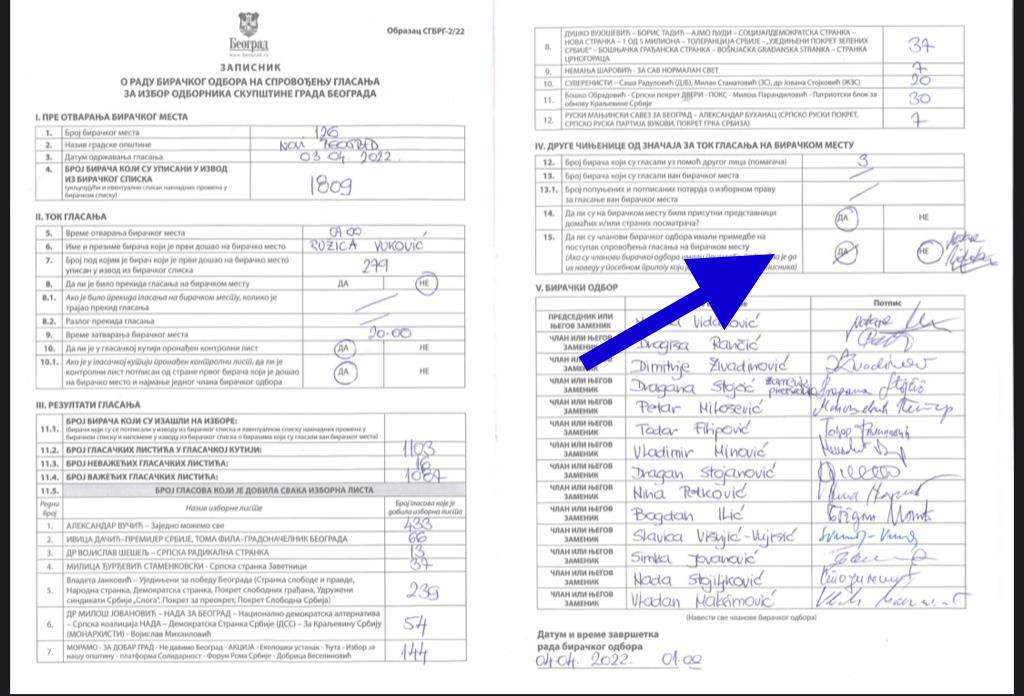 Београд
www.beograd.rs
Образац СГБРГ-2/22
ЗАПИСНИК
О РАДУ БИРАЧКОГ ОДБОРА НА СПРОВОЂЕЊУ ГЛАСАЊА
ЗА ИЗБОР ОДБОРНИКА СКУПШТИНЕ ГРАДА БЕОГРАДА
I. ПРЕ ОТВАРАЊА БИРАЧКОГ МЕСТА
1. Број бирачког места 126
2. Назив градске општине NOVI BEOGRAD
3. Датум одржавања гласања 03.04.2022.
4. БРОЈ БИРАЧА КОЈИ СУ УПИСАНИ У ИЗВОД
ИЗ БИРАЧКОГ СПИСКА 1809
(укључујући и евентуални списак накнадних промена у
бирачком списку)
II. ТОК ГЛАСАЊА
5. Време отварања бирачког места
6. Име и презиме бирача који је први дошао на бирачко место RUŽICA VUKOVIĆ
7. Број под којим је бирач који је први дошао на бирачко место
уписан у извод из бирачког списка 279
8. Да ли је било прекида гласања на бирачком месту ДА НЕ
8.1. Ако је било прекида гласања на бирачком месту, колико је
трајао прекид гласања
8.2. Разлог прекида гласања
9. Време затварања бирачког места 20.00
10. Да ли је у гласачкој кутији пронађен контролни лист ДА НЕ
10.1. Ако је у гласачкој кутији пронађен контролни лист, да ли је
контролни лист потписан од стране првог бирача који је дошао
на бирачко место и најмање једног члана бирачког одбора ДА НЕ
III. РЕЗУЛТАТИ ГЛАСАЊА
11.1. БРОЈ БИРАЧА КОЈИ СУ ИЗАШЛИ НА ИЗБОРЕ:
(бирачи који су се потписали у изводу из бирачког списка и евентуалном списку накнадних промена у
бирачком списку и напомене у изводу из бирачког списка о бирачима који су гласали ван бирачког места)
11.2. БРОЈ ГЛАСАЧКИХ ЛИСТИЋА У ГЛАСАЧКОЈ КУТИЈИ: 1103
11.3. БРОЈ НЕВАЖЕЋИХ ГЛАСАЧКИХ ЛИСТИЋА: 16
11.4. БРОЈ ВАЖЕЋИХ ГЛАСАЧКИХ ЛИСТИЋА: 1087
11.5. БРОЈ ГЛАСОВА КОЈИ ЈЕ ДОБИЛА СВАКА ИЗБОРНА ЛИСТА
Редни број Назив изборне листе Број гласова које је добила изборна листа
1. АЛЕКСАНДАР ВУЧИЋ – Заједно можемо све 433
2. ИВИЦА ДАЧИЋ–ПРЕМИЈЕР СРБИЈЕ, ТОМА ФИЛА–ГРАДОНАЧЕЛНИК БЕОГРАДА 66
3. ДР ВОЈИСЛАВ ШЕШЕЉ – СРПСКА РАДИКАЛНА СТРАНКА 13
4. МИЛИЦА ЂУРЂЕВИЋ СТАМЕНКОВСКИ - Српска странка Заветници 37
5. Владета Јанковић – Уједињени за победу Београда (Странка слободе и правде,
Народна странка, Демократска странка, Покрет слободних грађана, Удружени
синдикати Србије „Слога", Покрет за преокрет, Покрет Слободна Србија) 239
6. ДР МИЛОШ ЈОВАНОВИЋ – НАДА ЗА БЕОГРАД – Национално демократска алтернатива
– Српска коалиција НАДА – Демократска Странка Србије (ДСС) – За Краљевину Србију
(МОНАРХИСТИ) - Војислав Михаиловић 54
7. МОРАМО - ЗА ДОБАР ГРАД - Не давимо Београд - АКЦИЈА - Еколошки устанак - Ћута - Избор за
нашу општину - платформа Солидарност - Форум Рома Србије - Добрица Веселиновић 144
8. ДУШКО ВУЈОШЕВИЋ – БОРИС ТАДИЋ – АЈМО ЉУДИ – СОЦИЈАЛДЕМОКРАТСКА СТРАНКА –
НОВА СТРАНКА – 1 ОД 5 МИЛИОНА – ТОЛЕРАНЦИЈА СРБИЈЕ – „УЈЕДИЊЕНИ ПОКРЕТ ЗЕЛЕНИХ
СРБИЈЕ" – БОШЊАЧКА ГРАЂАНСКА СТРАНКА – BOŠNJAČKA GRAĐANSKA STRANKA – СТРАНКА
ЦРНОГОРАЦА 37
9. НЕМАЊА ШАРОВИЋ - ЗА САВ НОРМАЛАН СВЕТ 7
10. СУВЕРЕНИСТИ – Саша Радуловић (ДЈБ), Милан Стаматовић (ЗС), др Јована Стојковић (ЖЗС) 20
11. Бошко Обрадовић - Српски покрет ДВЕРИ - ПОКС - Милош Парандиловић - Патриотски блок за
обнову Краљевине Србије 30
12. РУСКИ МАЊИНСКИ САВЕЗ ЗА БЕОГРАД – АЛЕКСАНДАР БУХАНАЦ (СРПСКО РУСКИ ПОКРЕТ,
СРПСКО РУСКА ПАРТИЈА ВУКОВИ, ПОКРЕТ ГРКА СРБИЗА) 7
IV. ДРУГЕ ЧИЊЕНИЦЕ ОД ЗНАЧАЈА ЗА ТОК ГЛАСАЊА НА БИРАЧКОМ МЕСТУ
12. Број бирача који су гласали уз помоћ другог лица (помагача) 3
13. Број бирача који су гласали ван бирачког места
13.1. Број попуњених и потписаних потврда о изборном праву
за гласање ван бирачког места
14. Да ли су на бирачком месту били присутни представници
домаћих и/или страних посматрача? ДА НЕ
15. Да ли су чланови бирачког одбора имали примедбе на
поступак спровођења гласања на бирачком месту ДА НЕ
(Ако су чланови бирачког одбора имали је да
их наведу у посебном прилогу који
V. БИРАЧКИ ОДБОР
Потпис
ПРЕДСЕДНИК ИЛИ ЊЕГОВ ЗАМЕНИК Vidaković
ЧЛАН ИЛИ ЊЕГОВ ЗАМЕНИК Dragiša Rančić
ЧЛАН ИЛИ ЊЕГОВ ЗАМЕНИК Dimitrije Živadinović
ЧЛАН ИЛИ ЊЕГОВ ЗАМЕНИК Dragana Stojić
ЧЛАН ИЛИ ЊЕГОВ ЗАМЕНИК Petar Milošević
ЧЛАН ИЛИ ЊЕГОВ ЗАМЕНИК Todor Filipović
ЧЛАН ИЛИ ЊЕГОВ ЗАМЕНИК Vladimir Minović
ЧЛАН ИЛИ ЊЕГОВ ЗАМЕНИК Dragan Stojanović
ЧЛАН ИЛИ ЊЕГОВ ЗАМЕНИК Nina Petković
ЧЛАН ИЛИ ЊЕГОВ ЗАМЕНИК Bogdan Ilić
ЧЛАН ИЛИ ЊЕГОВ ЗАМЕНИК Slavica
ЧЛАН ИЛИ ЊЕГОВ ЗАМЕНИК Simka Jovanović
ЧЛАН ИЛИ ЊЕГОВ ЗАМЕНИК Nada Stojiljković
ЧЛАН ИЛИ ЊЕГОВ ЗАМЕНИК Vladan Maksimović
(Навести све чланове бирачког одбора)
Датум и време завршетка
рада бирачког одбора
04.04.2022. 01.00